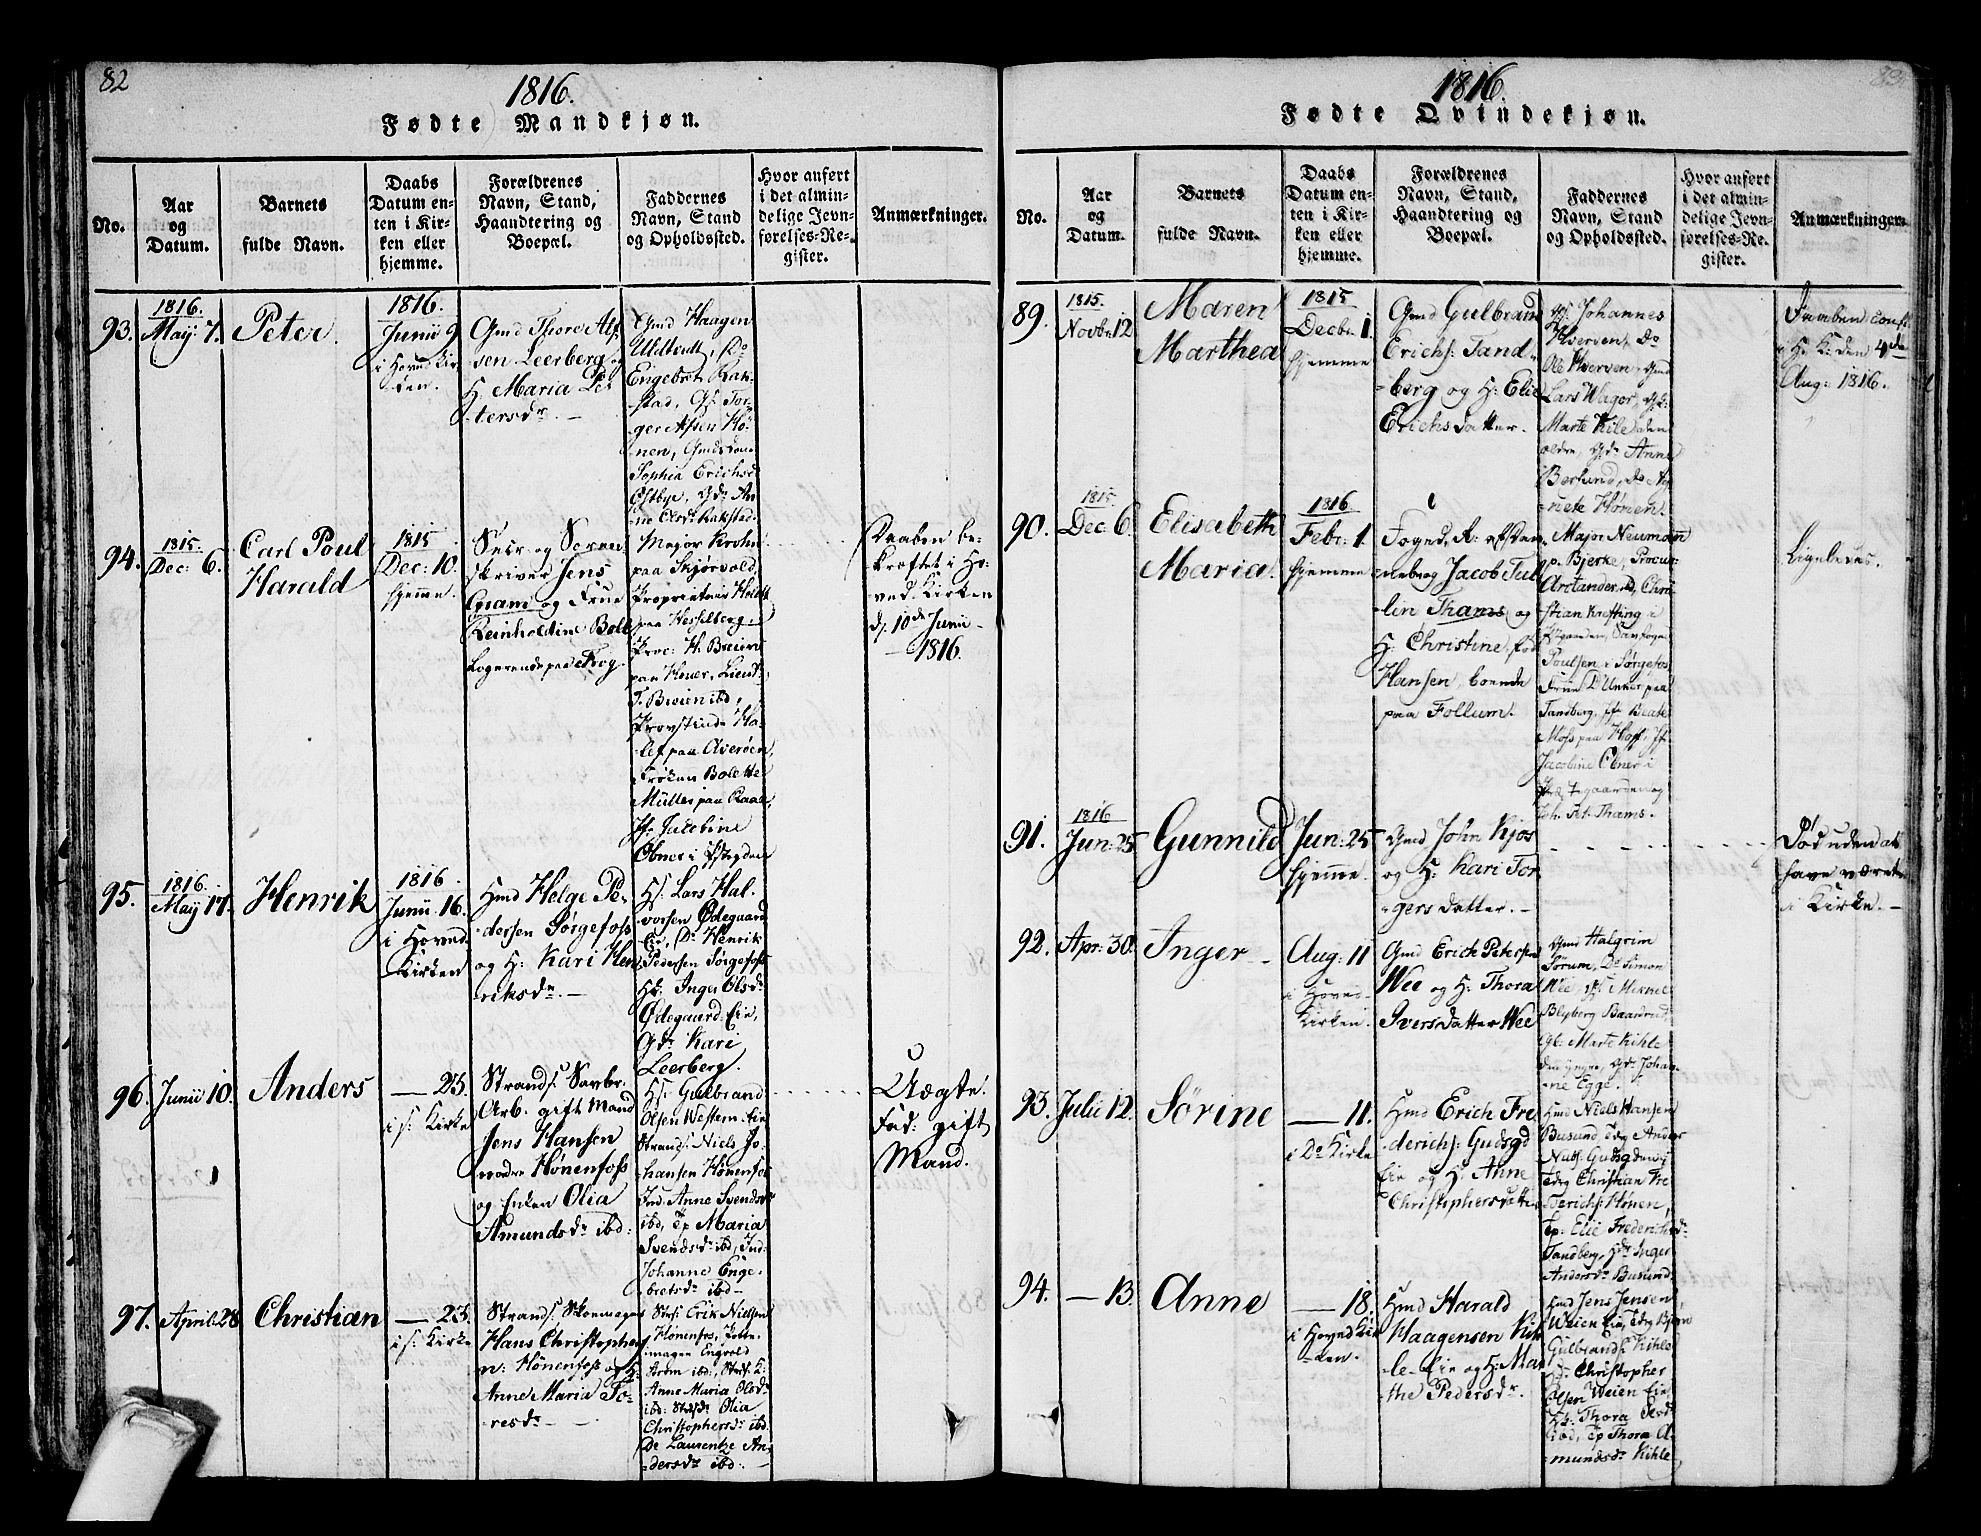 82
1816.
Fødte Mandkjøn.
No.
Aar
og
Datum.
Barnets
fulde Navn.
Daabs
Datum en-
ten i Kir-
ken eller
hjemme.
Forældrenes
Navn, Stand,
Haandtering og
Boepæl.
Faddernes
Navn, Stand
og Opholdssted.
Hvor anført
i det almin-
delige Jevn-
førelses-Re-
gister.
Anmærkninger.
93.
1816.
May: 7.
Peter.
1816.
Junii 9
i Hoved Kir-
ken.
Gmd Thore Alf-
sen Leerberg og
H. Maria Pe-
tersdr. –
Gmd Haagen
Do
Engebret Rak-
stad, Gs. Tor-
ger Hø-
nen,
Sophia Erichsd
Østbye, Gdr An-
ne Olsdr Rakstad.
94.
1815.
Dec: 6.
Carl Poul
Harald
1815
Dec: 10.
hjemme.
og Soren-
skriver Jens
Gram og Frue
Reinholdine Boll
Logerende paa Fog.
Major Krohn
paa Skjørvold,
Proprietair
paa Hesselberg,
Proc: H. Breien
paa Honer, Lieut:
T. Breien ibd,
Provstinde Ha-
lef paa Averøen,
Frøken Bolette
Müller paa Raae,
Jfr Jacobine
Daaben be-
kræftet i Ho-
ved Kirken
d. 10de Junii
– 1816.
95.
1816.
May 17.
Henrik
1816
Junii 16.
i Hoved
Kirken
Hmd Helge Pe-
dersen Sørgefoss
og H: Kari Hen-
riksdr. –
Hs: Lars Hal-
vorsen Ødegaard
Eie, Do Henrik
Pedersen Sørgefoss
Hk: Inger Olsdr
Ødegaard Eie,
Gdr Kari
Leerberg.
96.
Junii 10.
Anders
– 23.
i s: Kirke
Strands:
Arb. gift Mand
Jens Hansen
nordre Hønenfoss
og Enken Olia
Amundsdr ibd:
Hs: Gulbrand
Olsen Western: Eie
Strands: Niels Jo-
hansen Hønenfos
Ind: Anne Svendsdr
ibd, Tp Maria
Svendsdr ibd, Ind:
Johanne Enge-
bretsdr ibd –
Uægte.
Fad: gift
Mand.
97.
April 28
Christian
– 23.
i s: Kirke
Strands: Skomager
Hans Christophers
n: Hønenfoss og H:
Anne Maria To-
resdr –
Strs: Erik Nielsen
Hønenfos, Potte-
mager Engvold
Strøm ibd:,
Anne Maria Olsdr
ibd: Olia
Christophersdr ibd.
De Laurentze An-
dersdr ibd. –
83.
1816.
Fødte Qvindekjøn.
No.
Aar
og
Datum.
Barnets
fulde Navn.
Daabs
Datum en-
ten i Kir-
ken eller
hjemme.
Forældrenes
Navn, Stand,
Haandtering og
Boepæl.
Faddernes
Navn, Stand
og Opholdssted.
Hvor anført
i det almin-
delige Jevn-
førelses-Re-
gister.
Anmærkninger.
89.
1815.
Novbr: 12
Maren
Marthea
1815
Decbr: 1.
hjemme
Gmd Gulbrand
Erichs: Tand-
berg og H: Elie
Erichsdatter.
Johannes
Hverven, Do
Ole Hverven, Gmd
Lars Wager, Gk:
Marte Kile den
ældre, Gdr Anne
Berlund, Do Ag-
nete Hønen.
Daaben conf.
i H: K: den 4de
Aug: 1816.
90.
1815
Dec: 6.
Elisabeth
Maria.
1816
Febr: 1.
hjemme
Foged, R: af Dan-
nebrog Jacob Tul-
lin Thams og
H: Christine, fød
Hansen, boende
paa Follum.
Major Neumann
p. Bjerke, Procur:
Arctander, Chri-
stian Krefting i
Poulsen, i Sørgefos,
Frue Dr Unker paa
Tandberg, Jfr Beate
Moss paa Hoff, Jfr
Jacobine
og
Joh. Thams.
Ligeledes.
91.
1816
Jun: 25
Gunnild
Jun: 25
hjemme.
Gmd John Kjos
og H: Kari Tor-
gersdatter. –
Død uden at
have været
i Kirke. –
92.
Apr: 30.
Inger –
Aug: 11
i Hoved
Kirken.
Gmd Erich Petersen
Wee og H: Thora
Iversdatter Wee
Gmd Halgrim
Sørum, Do Simon
Wee, Mikkel
Blyberg Baardrud
Gk: Marte Kihle
den yngre, Gdr Johan-
ne Egge.
93.
Julii 12.
Sørine
– 11.
i Do Kirke
Hmd Erich Fre-
derichs: Gudsgd
Eie og H: Anne
Christophersdatter
Hmd Niels Hansen
Busund, Anders
Gudsgden
Christian Fre-
derichs: Hønen,
Tp: Elie Frederichsdr
Tandberg, Hdr Inger
Andersdr Busund
94.
– 13.
Anne
– 18.
i Hoved Kir-
ken.
Hmd Harald
Haagensen Kih-
le-Eie og H: Mar-
the Pedersdr.
Hmd Jens Jensen
Weien Eie, Bjørn
Gulbrands: Kihle
Christopher
Olsen Weien Eie
Hk: Thora
ibd, Tp Thora A-
mundsdr Kihle